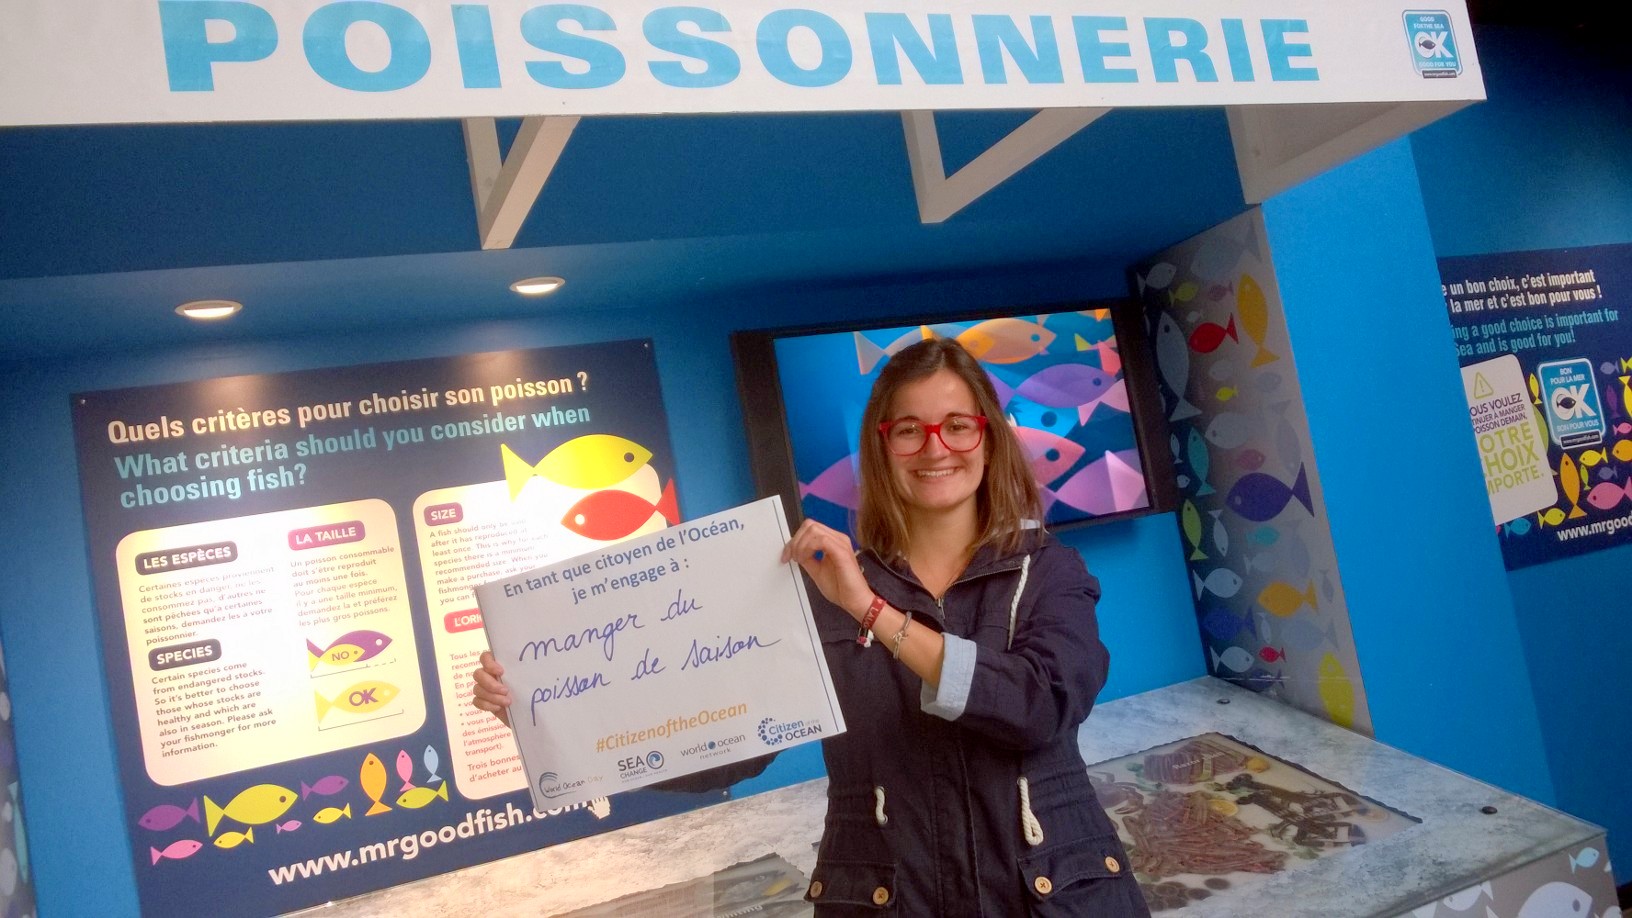 POISSONNERIE
GOOD
FOR THE SEA
OK
GOOD FOR YOU
Quels critères pour choisir son poisson ?
What criteria should you consider when
choosing fish?
LES ESPÈCES
Certaines espèces proviennent
de stocks en danger, ne les
consommez pas, d'autres ne
sont pêchées qu'à certaines
saisons, demandez les à votre
poissonnier.
SPECIES
Certain species come
from endangered stocks.
So it's better to choose
those whose stocks are
healthy and which are
also in season. Please ask
your fishmonger for more
information.
LA TAILLE
Un poisson consommable
doit s'être reproduit
au moins une fois.
Pour chaque espèce
il y a une taille minimum,
demandez la et préférez
les plus gros poissons.
NO
OK
SIZE
A fish should only be
after it has reproduced
least once. This is why for each
species there is a minimum
recommended size. When you
make a purchase, ask your
fishmonger
you can
L'ORI
Tous les
recomm
de no
En p
local
• vo
• vou
des émission
l'atmosphère
transport).
Trois bonnes
d'acheter au
www.mrgoodfish.com
En tant que citoyen de l'Océan,
je m'engage à :
manger du
poisson de saison
#CitizenoftheOcean
World Ocean Day
SEA
CHANGE
world ocean
network
Citizen of the
OCEAN
e un bon choix, c'est important
la mer et c'est bon pour vous !
ing a good choice is important for
Sea and is good for you!
OUS VOULEZ
TINUER À MANGER
POISSON DEMAIN,
OTRE
HOIX
MPORTE.
BON
POUR LA MER
OK
BON POUR VOUS
www.mrgood